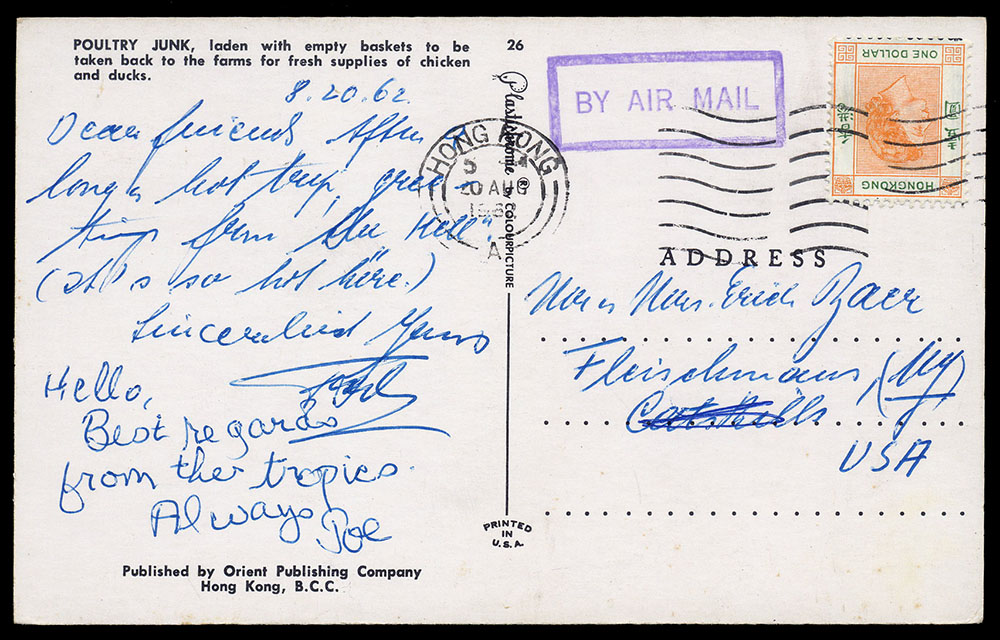 POULTRY JUNK, laden with empty baskets to be
taken back to the farms for fresh supplies of chicken
and ducks.
8.20.62
Dear friends After
long a hot trip, gree-
tings from the "Hell"
(it's so hot here.)
Sincerelied Yours
Hello,
Best regards
from the tropics.
Always
Joe
Published by Orient Publishing Company
Hong Kong, B.C.C.
26
Plastichrome ® by COLOURPICTURE
PRINTED
IN
U.S.A.
BY AIR MAIL
HONG KONG
20 AUG
A
ONE DOLLAR
香港
壹圓
HONGKONG
ADDRESS
Mr. Mrs. Erich Baer
Fleischmans, (NY)
Catskills
USA